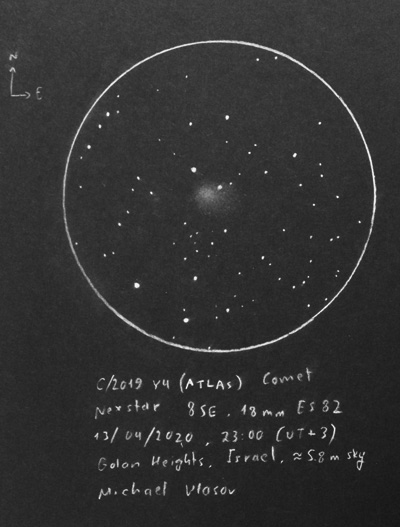 N
E
C/2019 Y4 (ATLAS) Comet
Nexstar 8SE, 18mm ES 82
13/04/2020, 23:00 (UT+3)
Golan Heights, Israel, ≈5.8m sky
Michael Vlasov